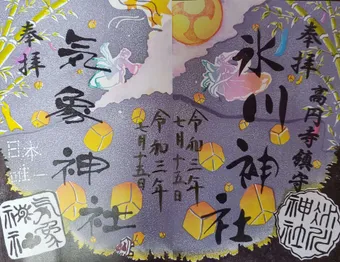 奉拝
高円寺鎮守
氷川神社
令和三年
七月十五日
奉拝
気象神社
令和三年
七月十五日
日本
唯一
気象
神社
氷川
神社